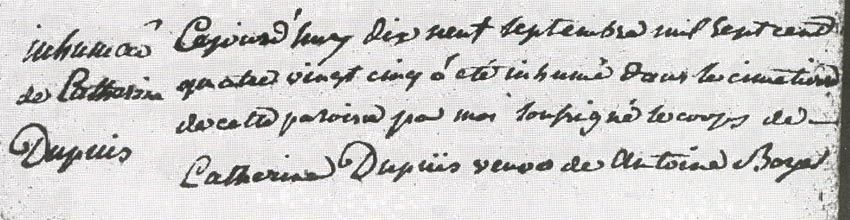 inhumaõn
de Catherine
Dupuis
Cajourd'huy dix neuf septembre mil sept cent
quatre vingt cinq á été inhumé dans le cimetiere
de cette paroisse par moi soussigné le corps de
Catherine Dupuis veuve de Antoine Boyer